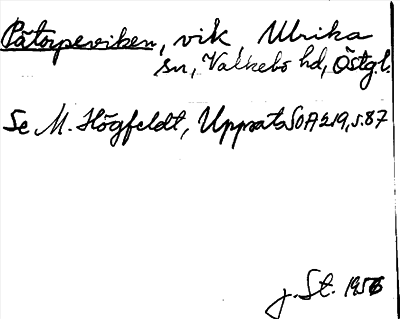 Påtorpeviken, vik, Ulrika
sn, Valkebo hd, Östgl.
Se M. Högfeldt, Uppsats OA 219, s. 87
J. St. 1956